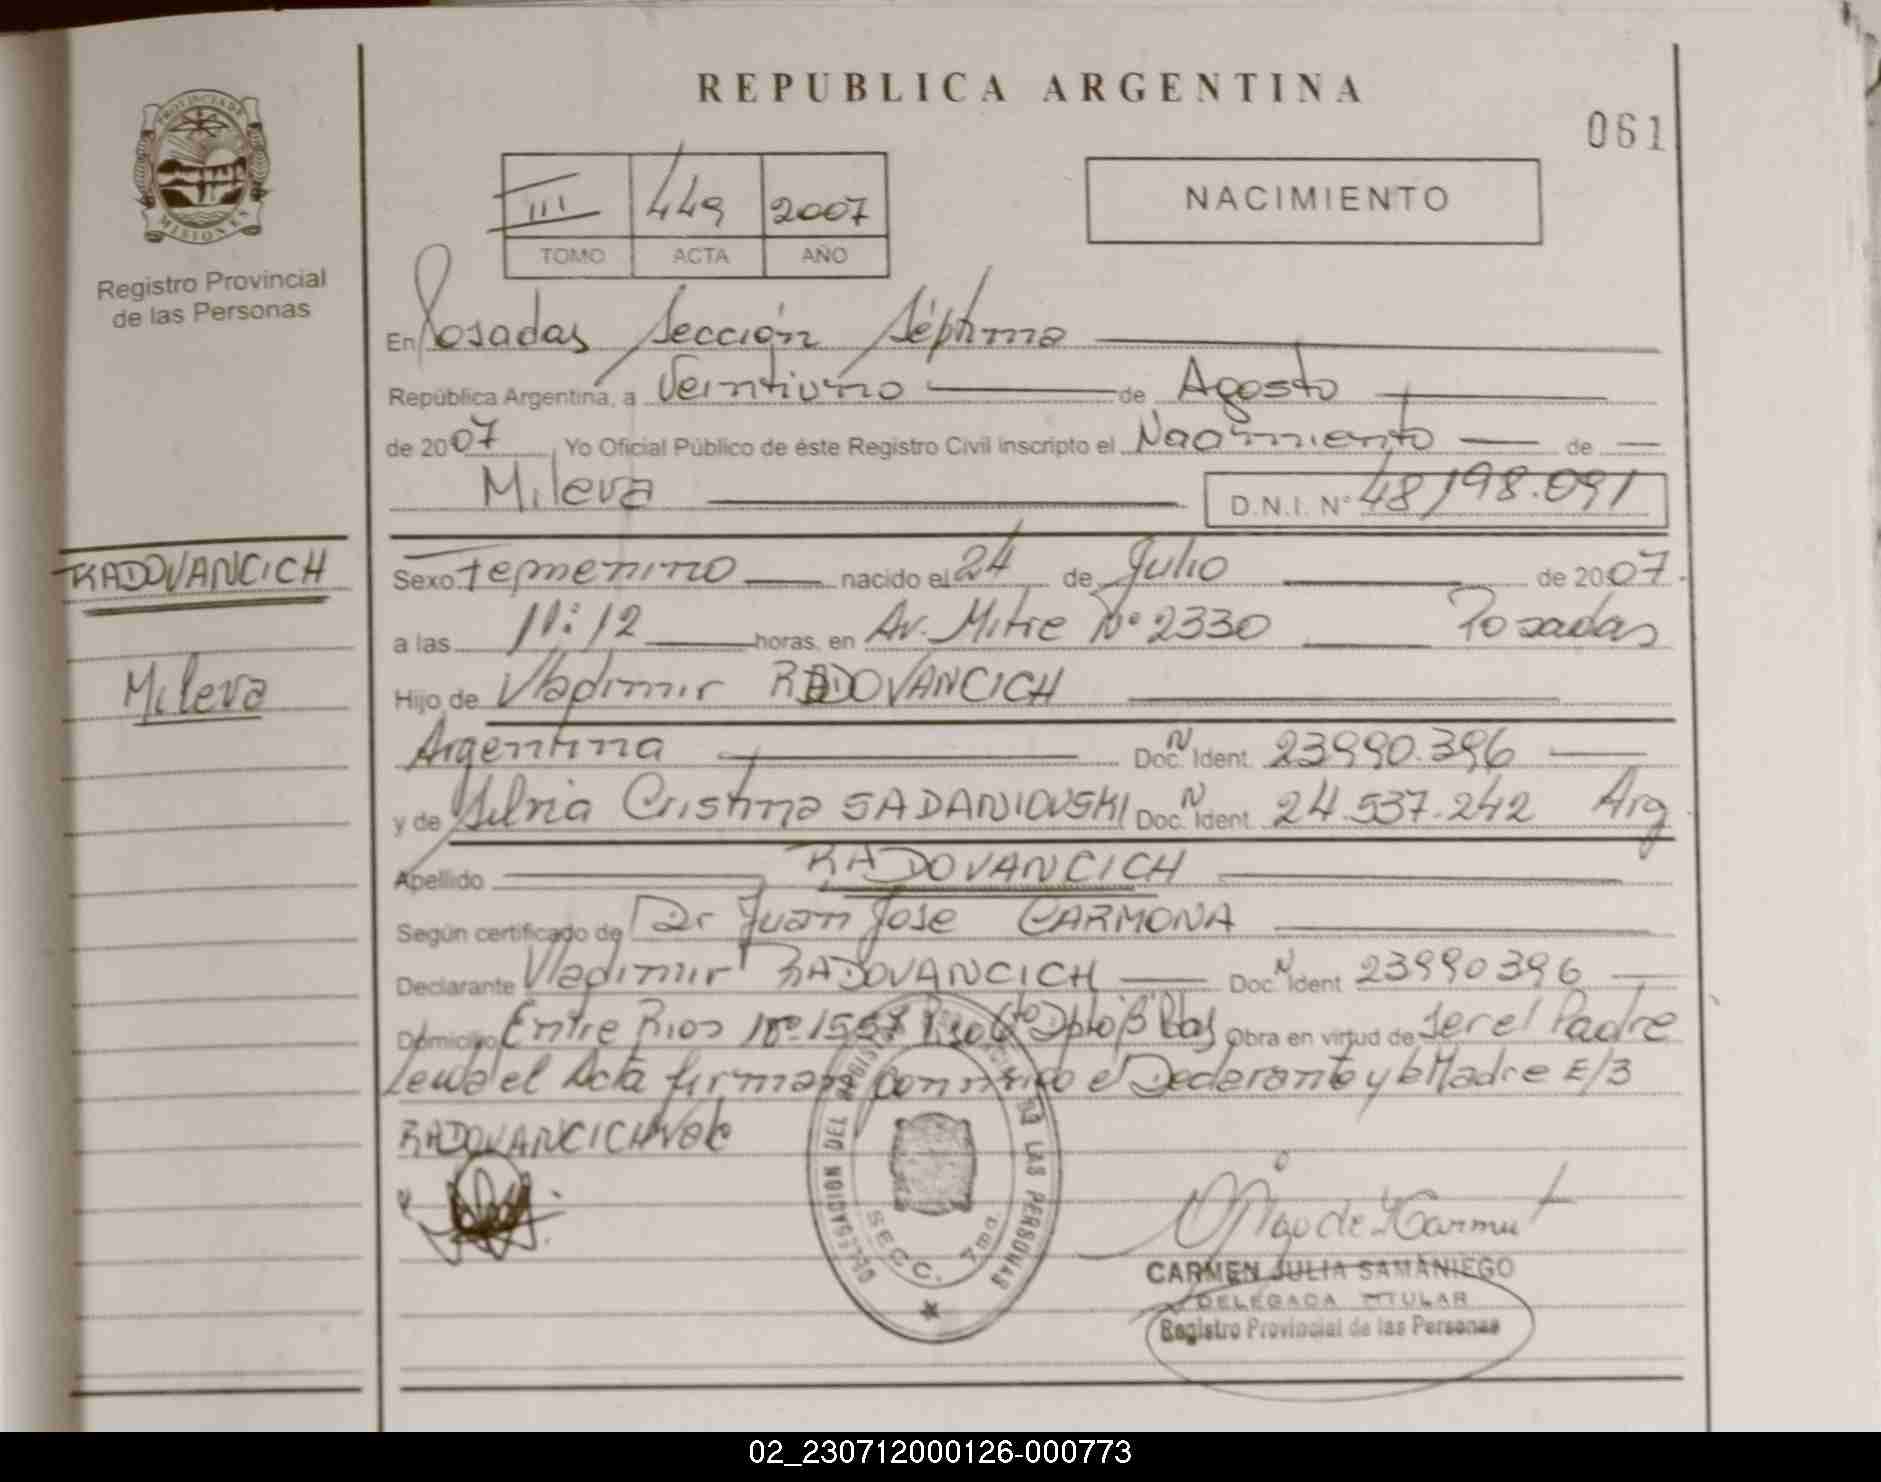 REPUBLICA ARGENTINA
061
PROVINCIA DE
MISIONES
Registro Provincial
de las Personas
III 449 2007
TOMO ACTA AÑO
NACIMIENTO
En Posadas Sección Séptima
República Argentina, a Veintiuno de Agosto
de 2007 Yo Oficial Público de éste Registro Civil inscripto el Nacimiento de
Mileva D.N.I. Nº 48198.091
RADOVANCICH
Mileva
Sexo Femenino nacido el 24 de Julio de 2007.
a las 11:12 horas, en Av. Mitre Nº 2330 Posadas
Hijo de Vladimir RADOVANCICH
Argentina Doc. N Ident. 23990.396
y de Silvia Cristina SADANIOVSKI Doc. N Ident. 24.537.242 Arg
Apellido RADOVANCICH
Según certificado de Dr Juan Jose CARMONA
Declarante Vladimir RADOVANCICH Doc. N Ident 23990396
Domicilio Entre Rios Nº 1557 Dpto B Obra en virtud de Ser el Padre
Leida el Acta firman conmigo el Declarante y la Madre E/3
RADOVANCICH
DELEGACION DEL REGISTRO DE LAS PERSONAS
SECC. 7ma.
CARMEN JULIA SAMANIEGO
DELEGADA TITULAR
Registro Provincial de las Personas
02_230712000126-000773